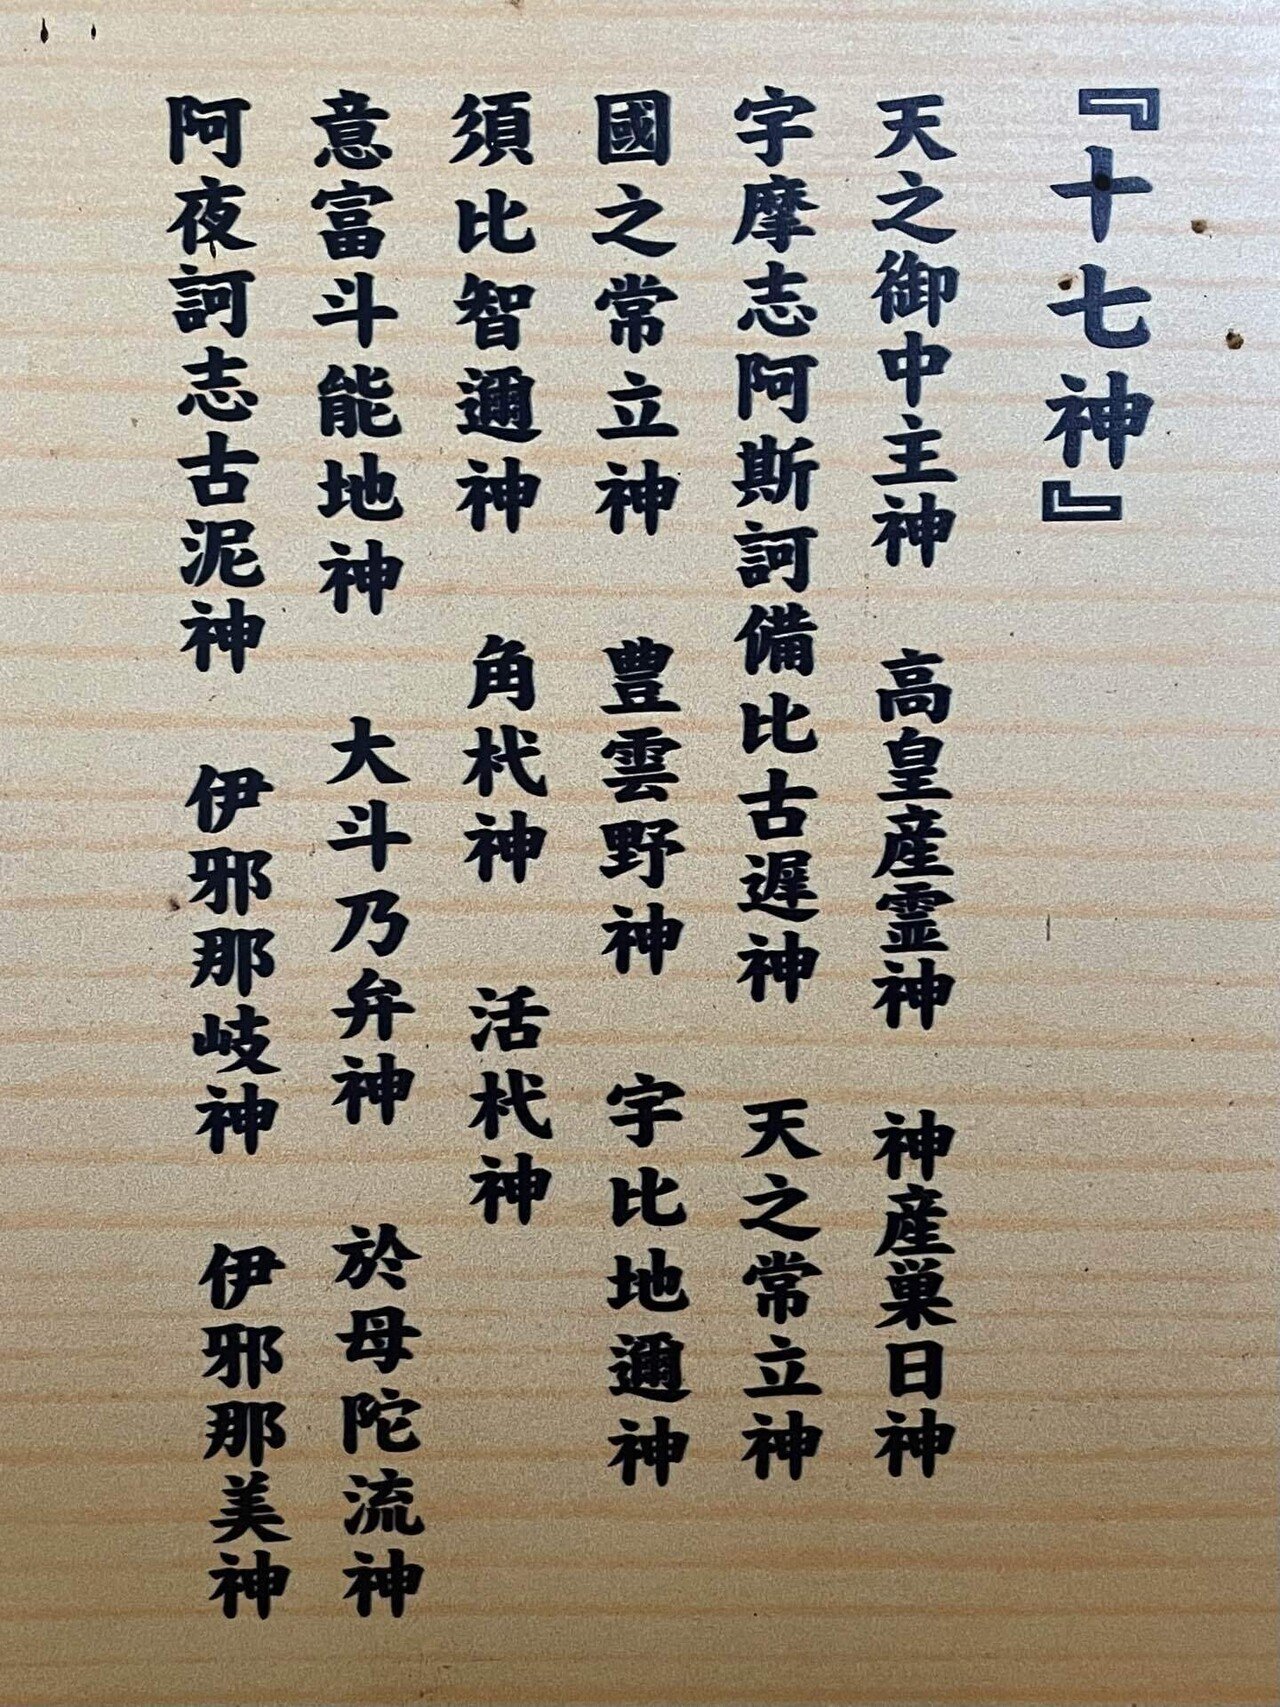 『十七神』
天之御中主神　高皇産霊神　神産巣日神
宇摩志阿斯訶備比古遅神　天之常立神
國之常立神　豊雲野神　宇比地邇神
須比智邇神　角杙神　活杙神
意富斗能地神　大斗乃弁神　於母陀流神
阿夜訶志古泥神　伊邪那岐神　伊邪那美神